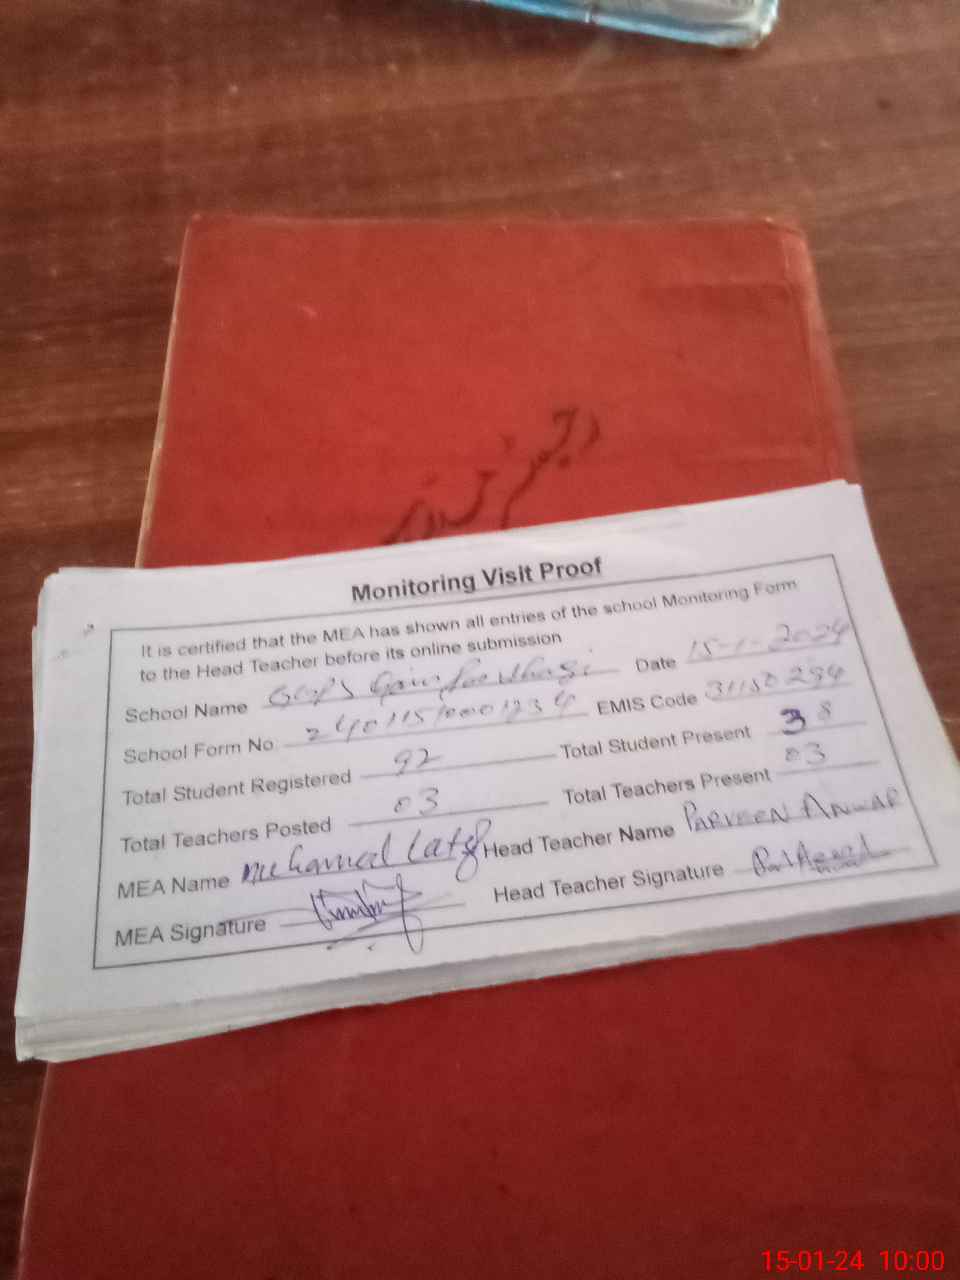 Monitoring Visit Proof
It is certified that the MEA has shown all entries of the school Monitoring Form
to the Head Teacher before its online submission
School Name Date 15-1-2024
School Form No EMIS Code 31150294
Total Student Registered 92 Total Student Present 38
Total Teachers Posted 03 Total Teachers Present 03
MEA Name Muhamed Latif Head Teacher Name PARVEEN ANWAR
MEA Signature Head Teacher Signature
15-01-24 10:00